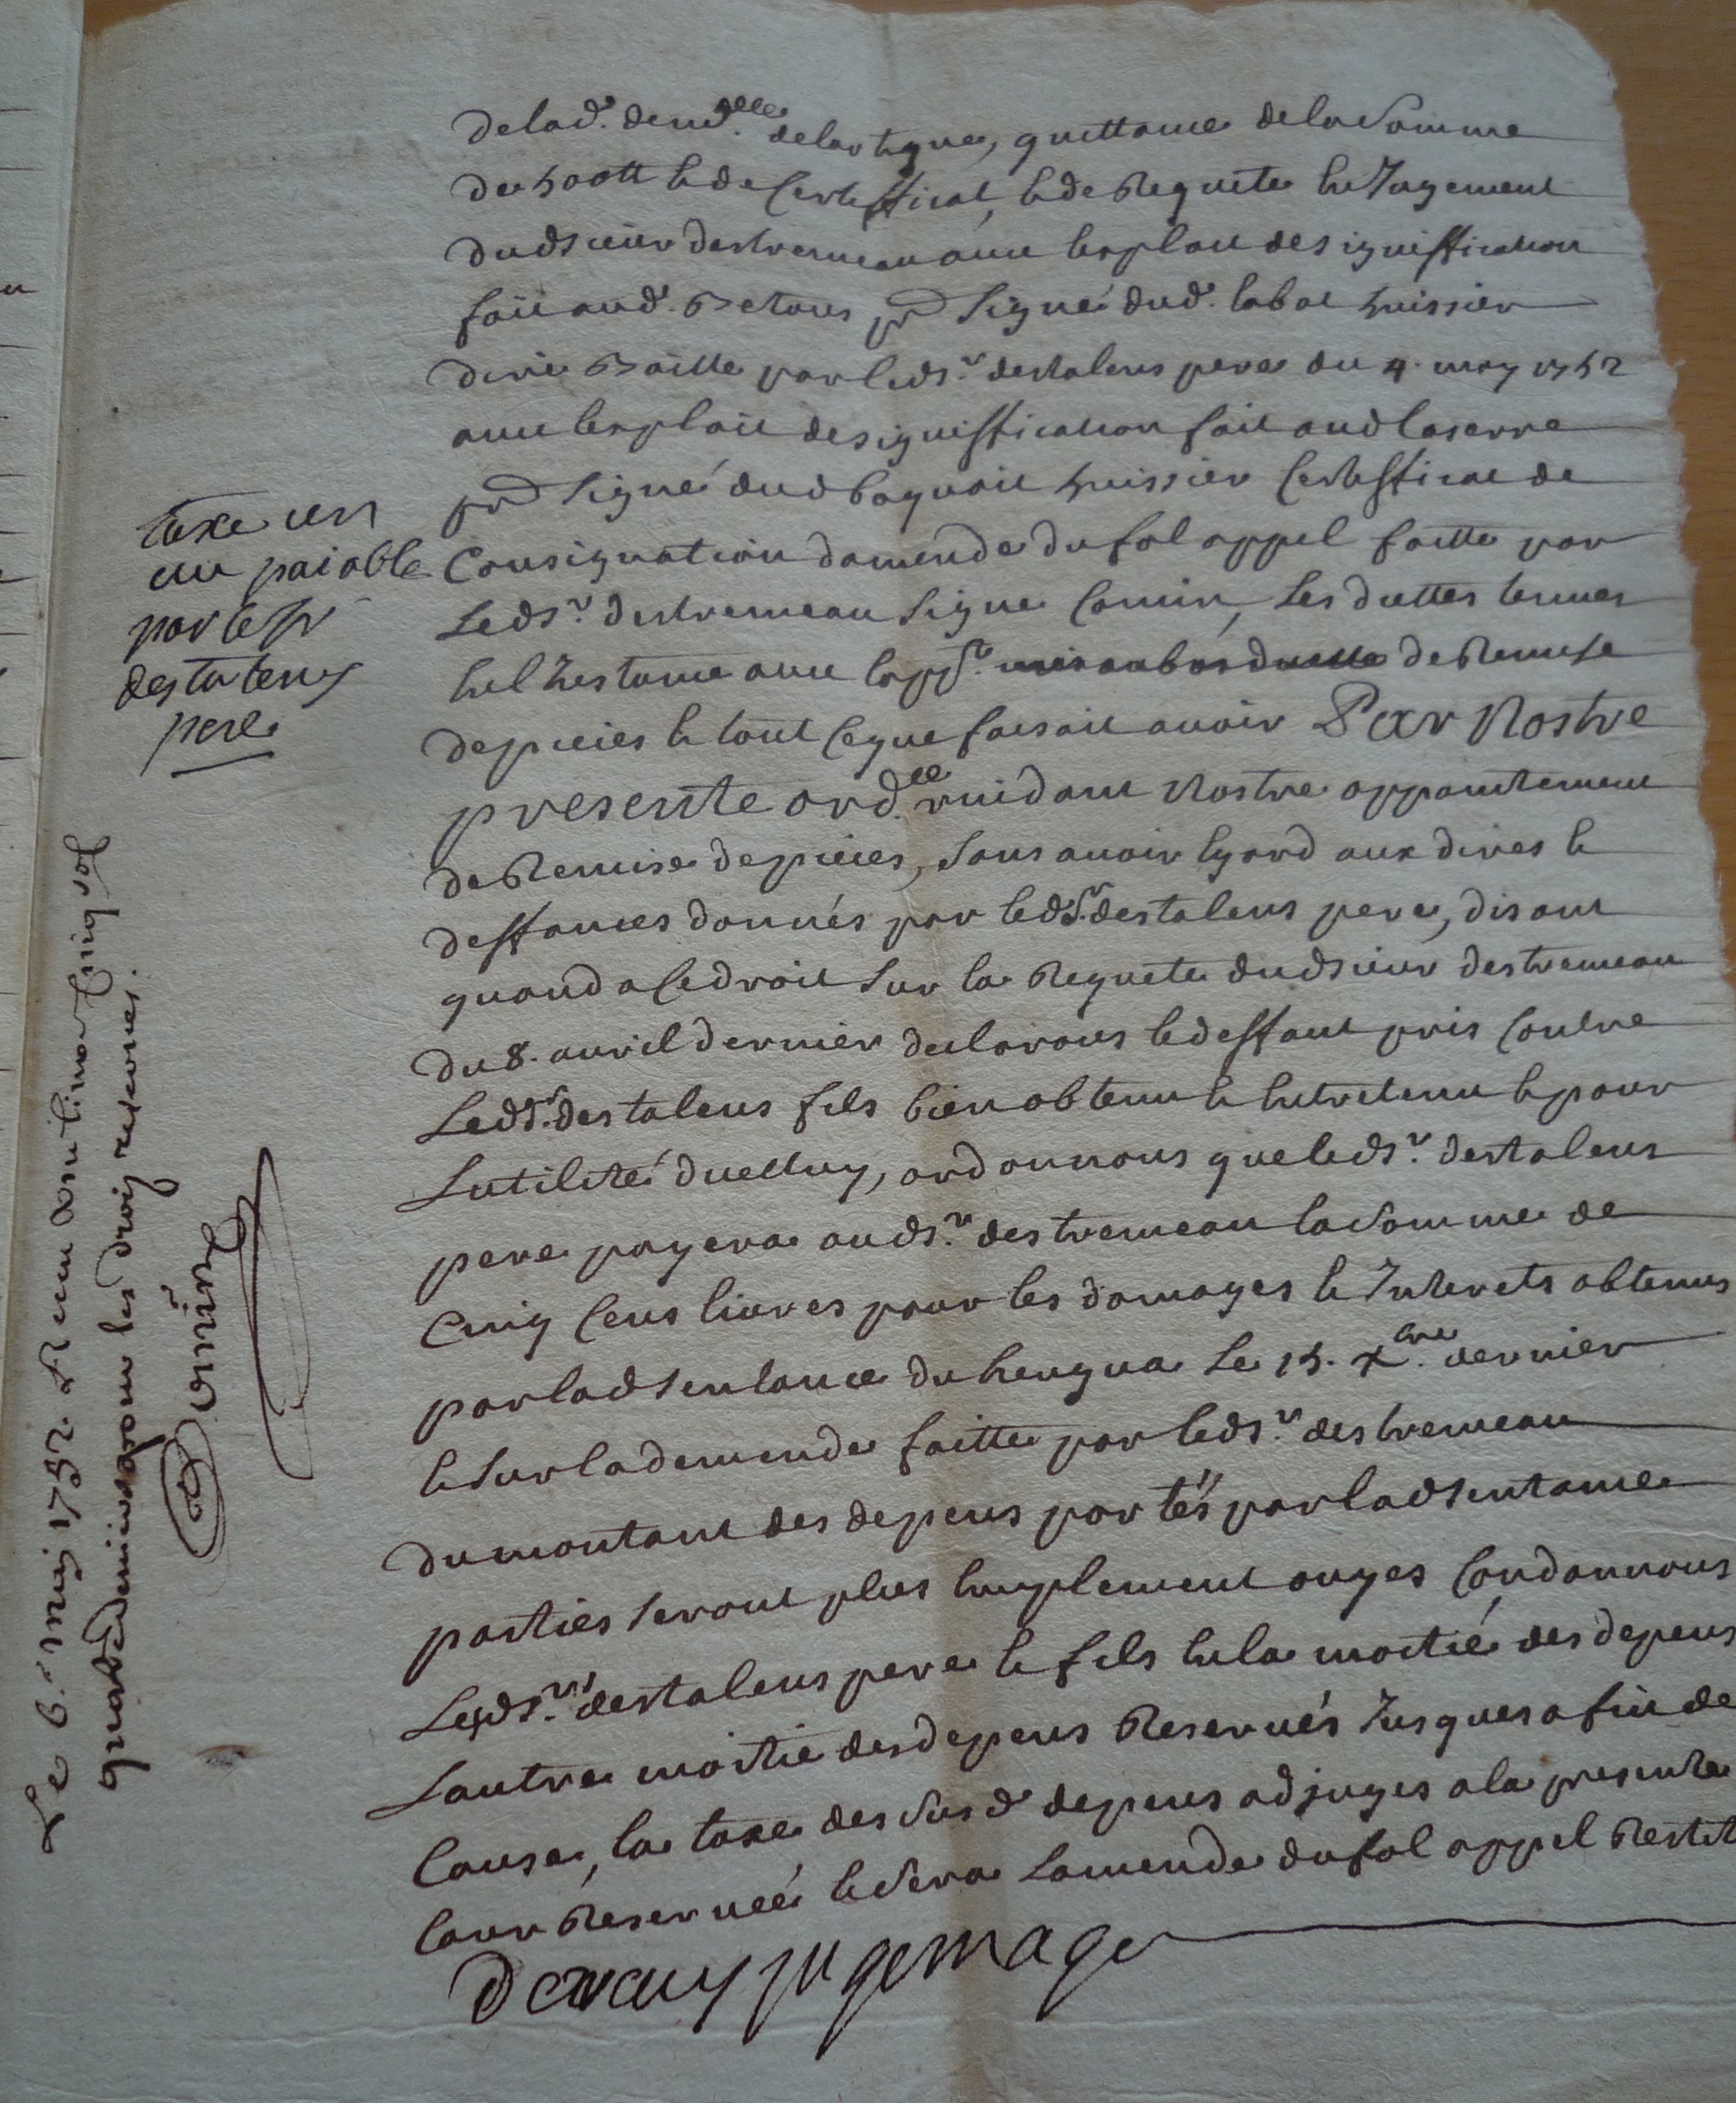 delad. dem.elle delartigue, quittance delasomme
de 500tt & de Certifficat, & de Requete En Jugement
dudsieur destremeau avec Lexploit designiffication
fait aud. Betous pr signé dud. Labat huissier
dire Baillé par leds.r destalens pere du 4. may 1752
avec Lexploit designiffication fait aud laserre
pr signé dud huissier Certifficat de
Consignation damende dufol appel faitte par
Leds.r destremeau signé Comin, Les dattes tenues
En Linstance avec Lapp.t de Remise
depieces & tout Ceque faisait avoir Par Nostre
presente ord.ce vuidant Nostre appointement
de Remise depieces, sans avoir Egard aux dires &
deffances donnés par leds.r destalens pere, disant
quand a Cedroit sur la Requete dudsieur destremeau
du 8. avril dernier declarons ledeffaut pris Contre
Leds.r destalens fils bien obtenu & Entretenu & pour
Lutilité dicelluy, ordonnons que leds.r destalens
pere payera auds.r destremeau lasomme de
Cinq Cens livres pour les domages & Interets obtenus
parlad sentance du senequa Le 15. Xbre dernier
& surlademende faitte par leds.r destremeau
dumontant des depens portés parlad sentance
parties seront plus Emplement ouyes Condannons
Lesds.rs destalens pere & fils En la moitié des depens
Lautre moitié desdepens Reservés Jusques a fin de
Cause, la taxe des susd depens adjuges a la presente
Cour Reservéé & sera Lamende dufol appel Restit
daxauy jugemage
taxe un
ecu paiable
par le sr
destalens
pere
Le 6.e may 1752. Receu dix livres cinq sol
quatre deniers pour les droitz reservés.
Comin